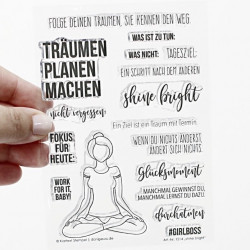 FOLGE DEINEN TRÄUMEN, SIE KENNEN DEN WEG.
TRÄUMEN
PLANEN
MACHEN
WAS IST ZU TUN:
WAS NICHT:
TAGESZIEL:
EIN SCHRITT NACH DEM ANDEREN
shine bright
nicht vergessen
Ein Ziel ist ein Traum mit Termin.
FOKUS
FÜR
HEUTE:
WENN DU NICHTS ÄNDERST,
ÄNDERT SICH NICHTS.
Glücksmoment
WORK
FOR IT,
BABY!
MANCHMAL GEWINNST DU,
MANCHMAL LERNST DU.
durchatmen
#GIRLBOSS